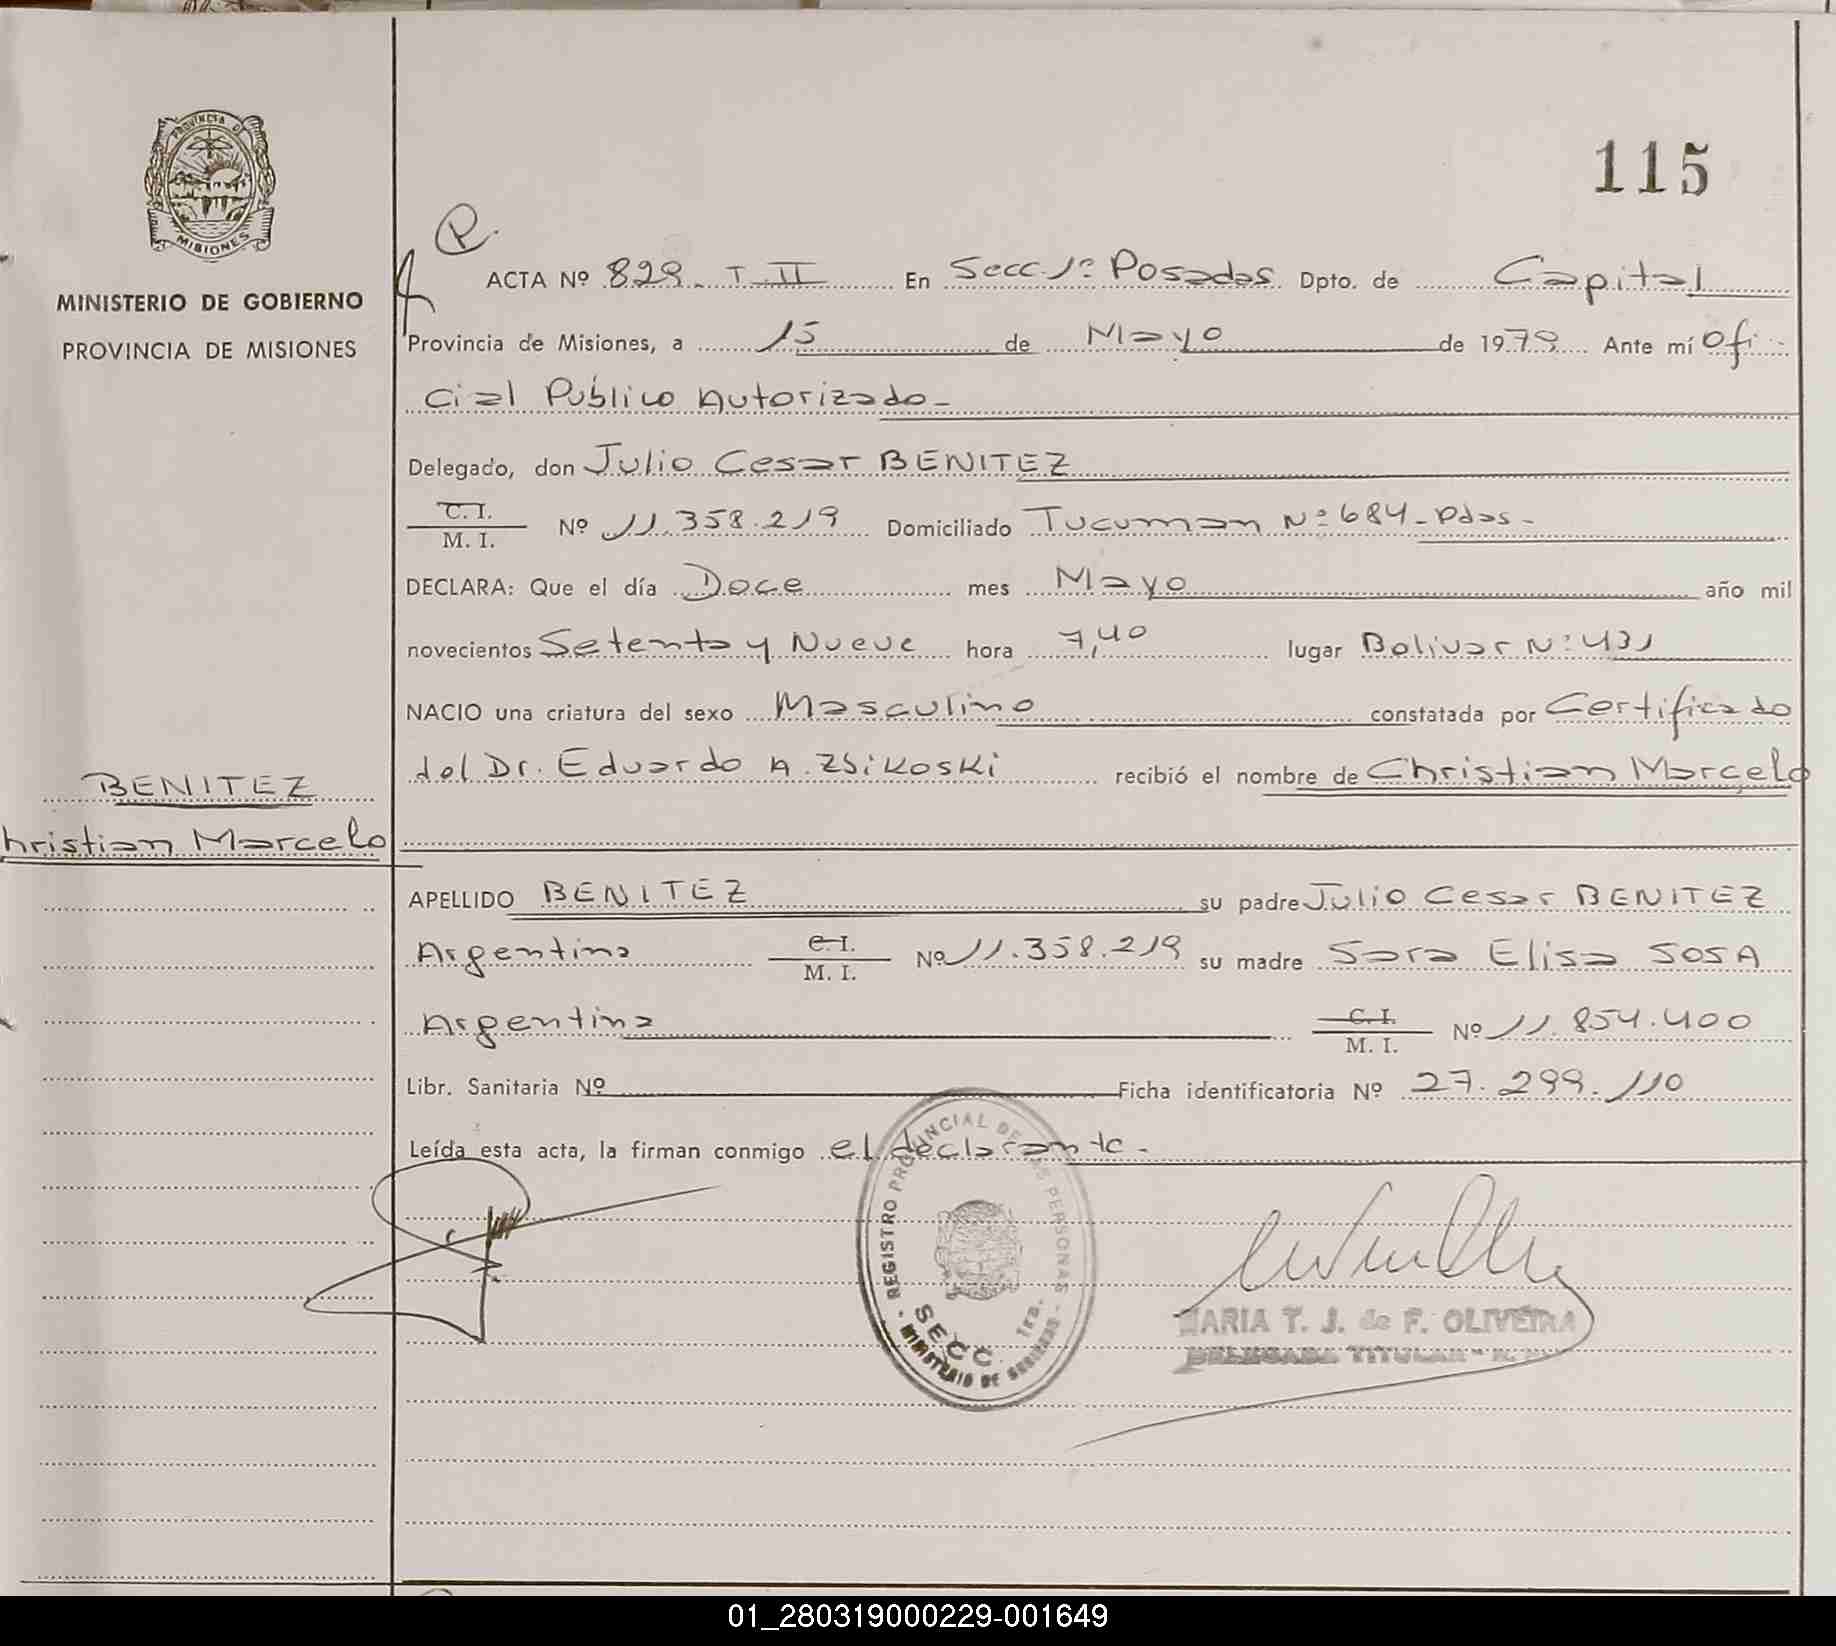 115
PROVINCIA D
MISIONES
MINISTERIO DE GOBIERNO
PROVINCIA DE MISIONES
ACTA Nº 829 T-II En Secc 1º Posadas Dpto. de Capital
Provincia de Misiones, a 15 de Mayo de 1979 Ante mí Ofi-
cial Publico Autorizado-
Delegado, don Julio Cesar BENITEZ
C. I.
M. I.
Nº 11.358.219 Domiciliado Tucuman Nº 684-Pdas-
DECLARA: Que el día Doce mes Mayo año mil
novecientos Setenta y Nueve hora 7,40 lugar Bolivar Nº 431
NACIO una criatura del sexo Masculino constatada por Certificado
del Dr. Eduardo A. Zsikoski recibió el nombre de Christian Marcelo
BENITEZ
hristian Marcelo
APELLIDO BENITEZ su padre Julio Cesar BENITEZ
Argentina C. I. M. I. Nº 11.358.219 su madre Sara Elisa SOSA
Argentina C. I. M. I. Nº 11.854.400
Libr. Sanitaria Nº Ficha identificatoria Nº 27.299.110
Leída esta acta, la firman conmigo el declarante-
REGISTRO PROVINCIAL DE LAS PERSONAS
SECC. 1ra.
MINISTERIO DE GOBIERNO
MARIA T. J. de F. OLIVEIRA
DELEGADA TITULAR
01_280319000229-001649